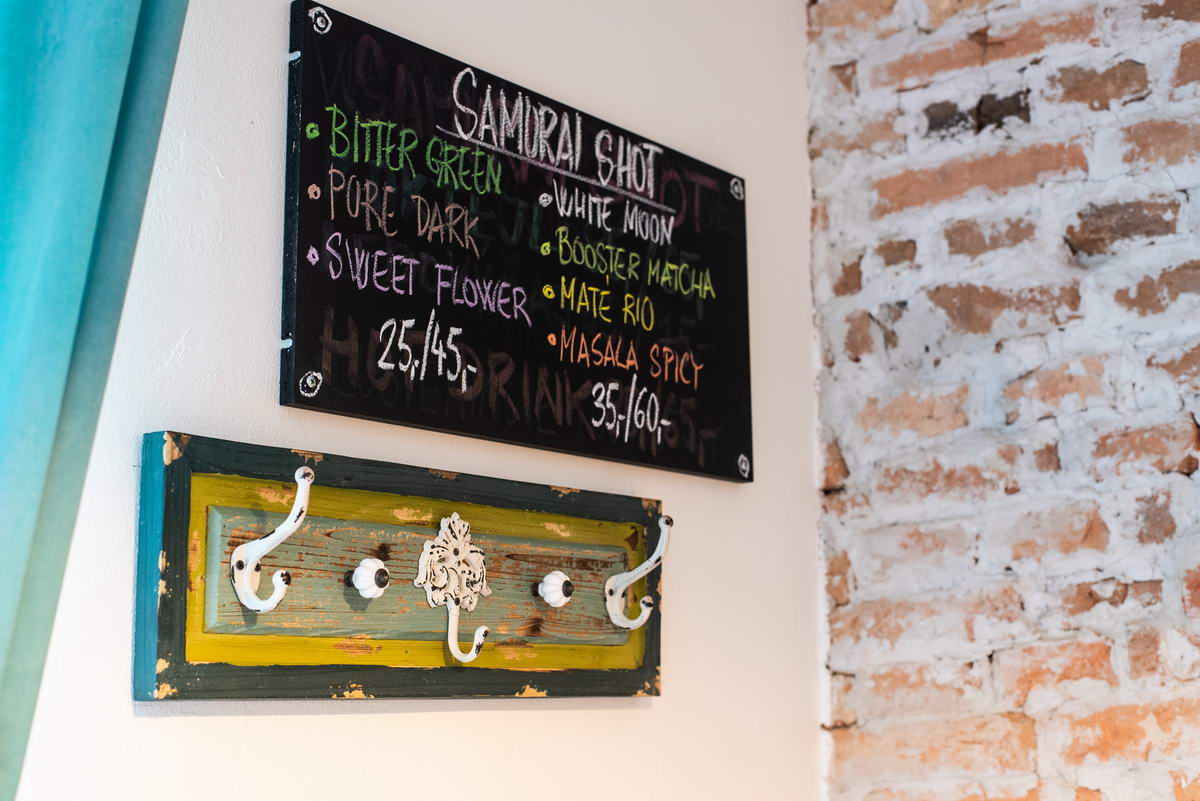 SAMURAI SHOT
• BITTER GREEN
• PURE DARK
• SWEET FLOWER
25,-/45,-
• WHITE MOON
• BOOSTER MATCHA
• MATE RIO
• MASALA SPICY
35,-/60,-